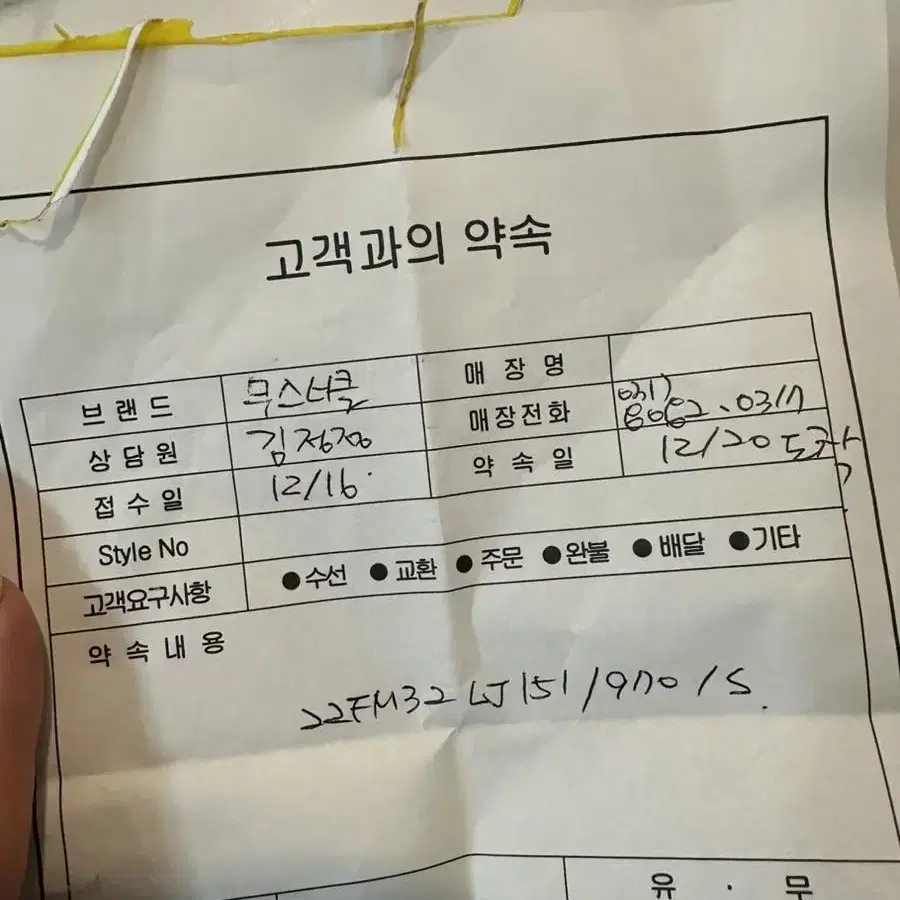 고객과의 약속
브랜드 무스너클 매장명
상담원 매장전화 031) 8062.0317
접수일 12/16 약속일 12/20
Style No
고객요구사항 ●수선 ●교환 ●주문 ●완불 ●배달 ●기타
약속내용
22FM32LJ151/970/S
유 · 무